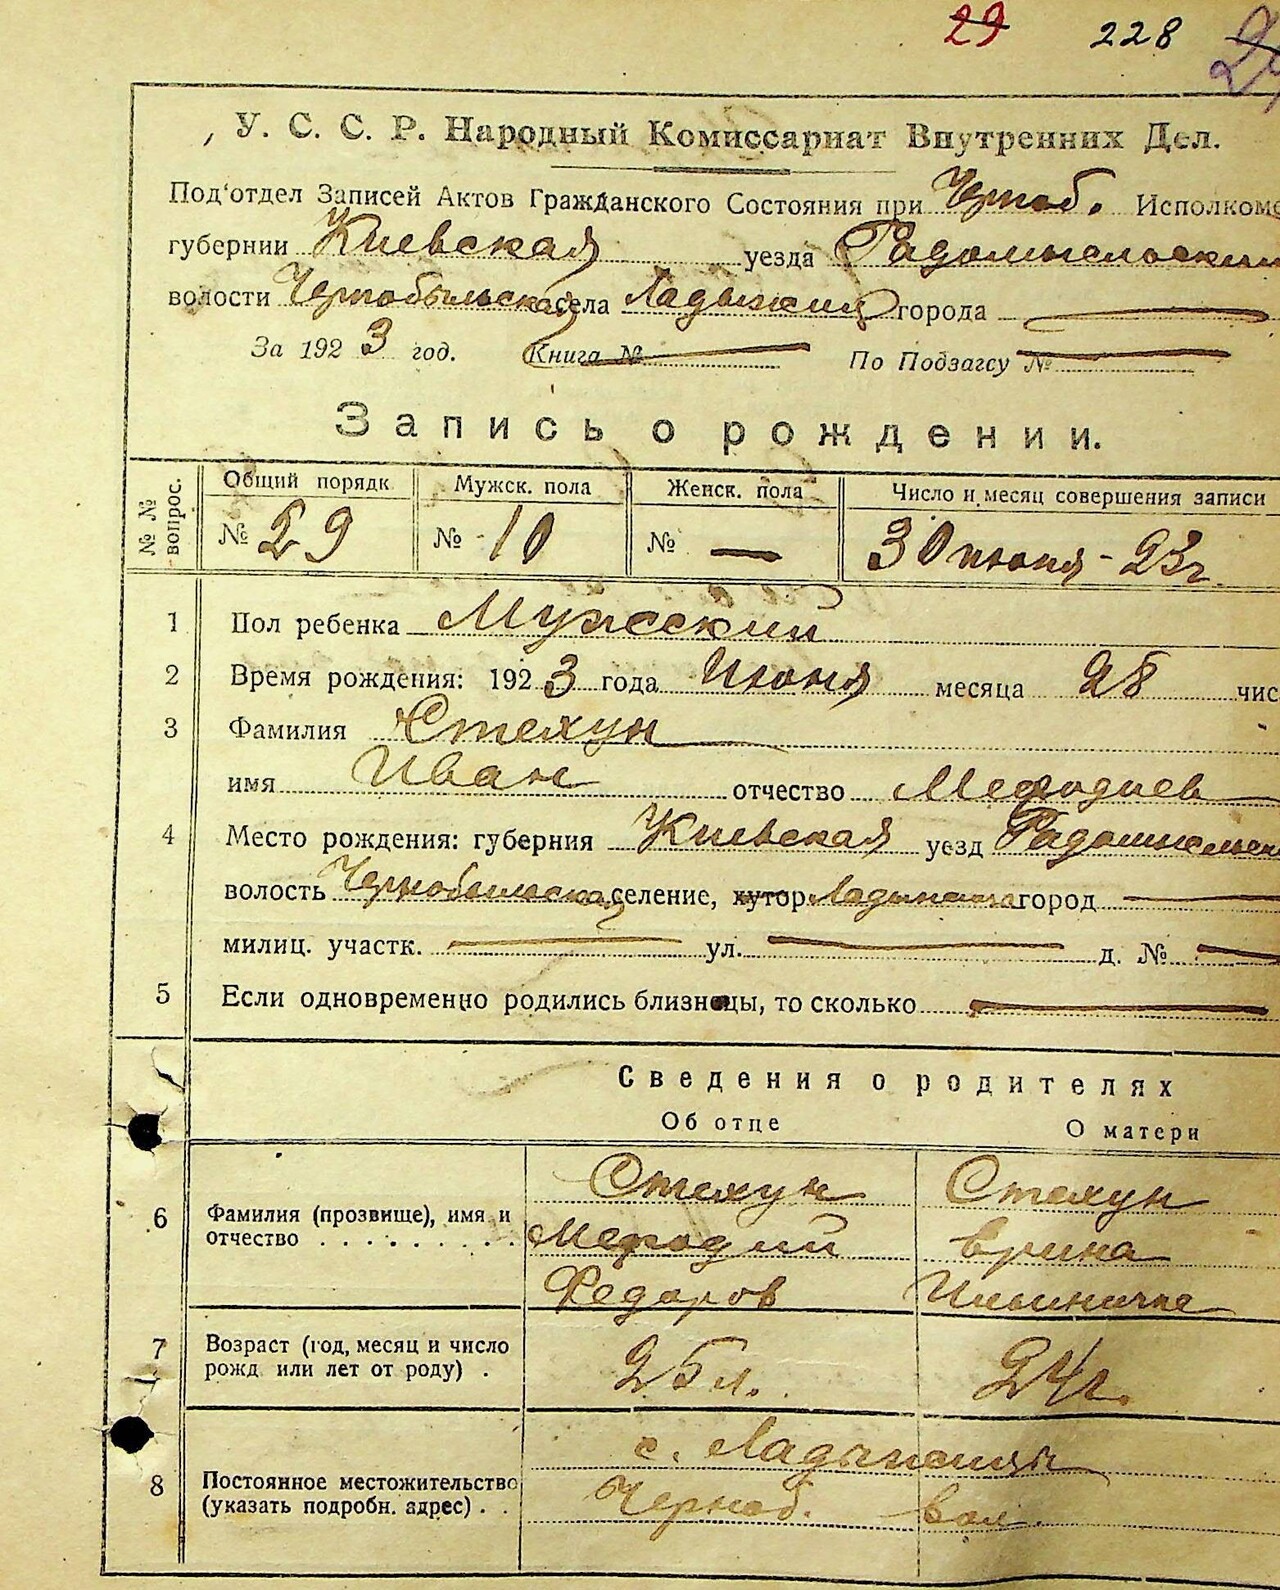 29 228 24
У. С. С. Р. Народный Комиссариат Внутренних Дел.
Под'отдел Записей Актов Гражданского Состояния при Черноб. Исполкоме
губернии Киевская уезда Радомысльский
волости Чернобыльская села Ладыжичи города
За 1923 год. Книга № По Подзагсу №
Запись о рождении.
№ № вопрос. Общий порядк Мужск. пола Женск. пола Число и месяц совершения записи
№ 29 № 10 № — 30 июня - 23 г.
1 Пол ребенка Мужеский
2 Время рождения: 1923 года Июня месяца 28 чис
3 Фамилия Стехун
имя Иван отчество Мефодиев
4 Место рождения: губерния Киевская уезд Радомысльск
волость Чернобыльская селение, хутор город
милиц. участк. — ул. — д. № —
5 Если одновременно родились близнецы, то сколько —
Сведения о родителях
Об отце О матери
6 Фамилия (прозвище), имя и отчество Стехун Мефодий Федоров Стехун Ирина
7 Возраст (год, месяц и число рожд или лет от роду) . 25 л. 24 г.
8 Постоянное местожительство (указать подробн. адрес) . . с. Ладыжичи
Черноб. вол.